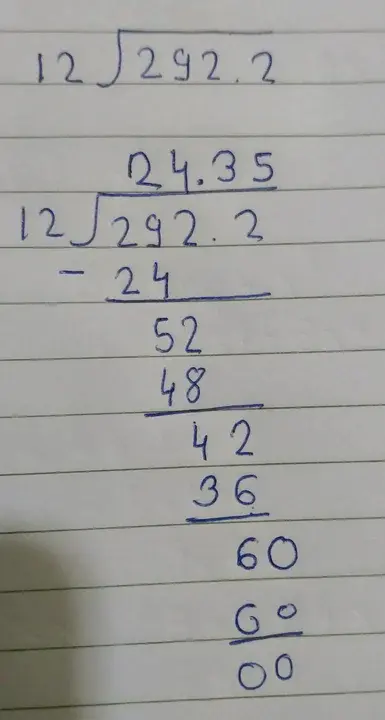 12 292.2
24.35
12 292.2
- 24
52
48
42
36
60
60
00